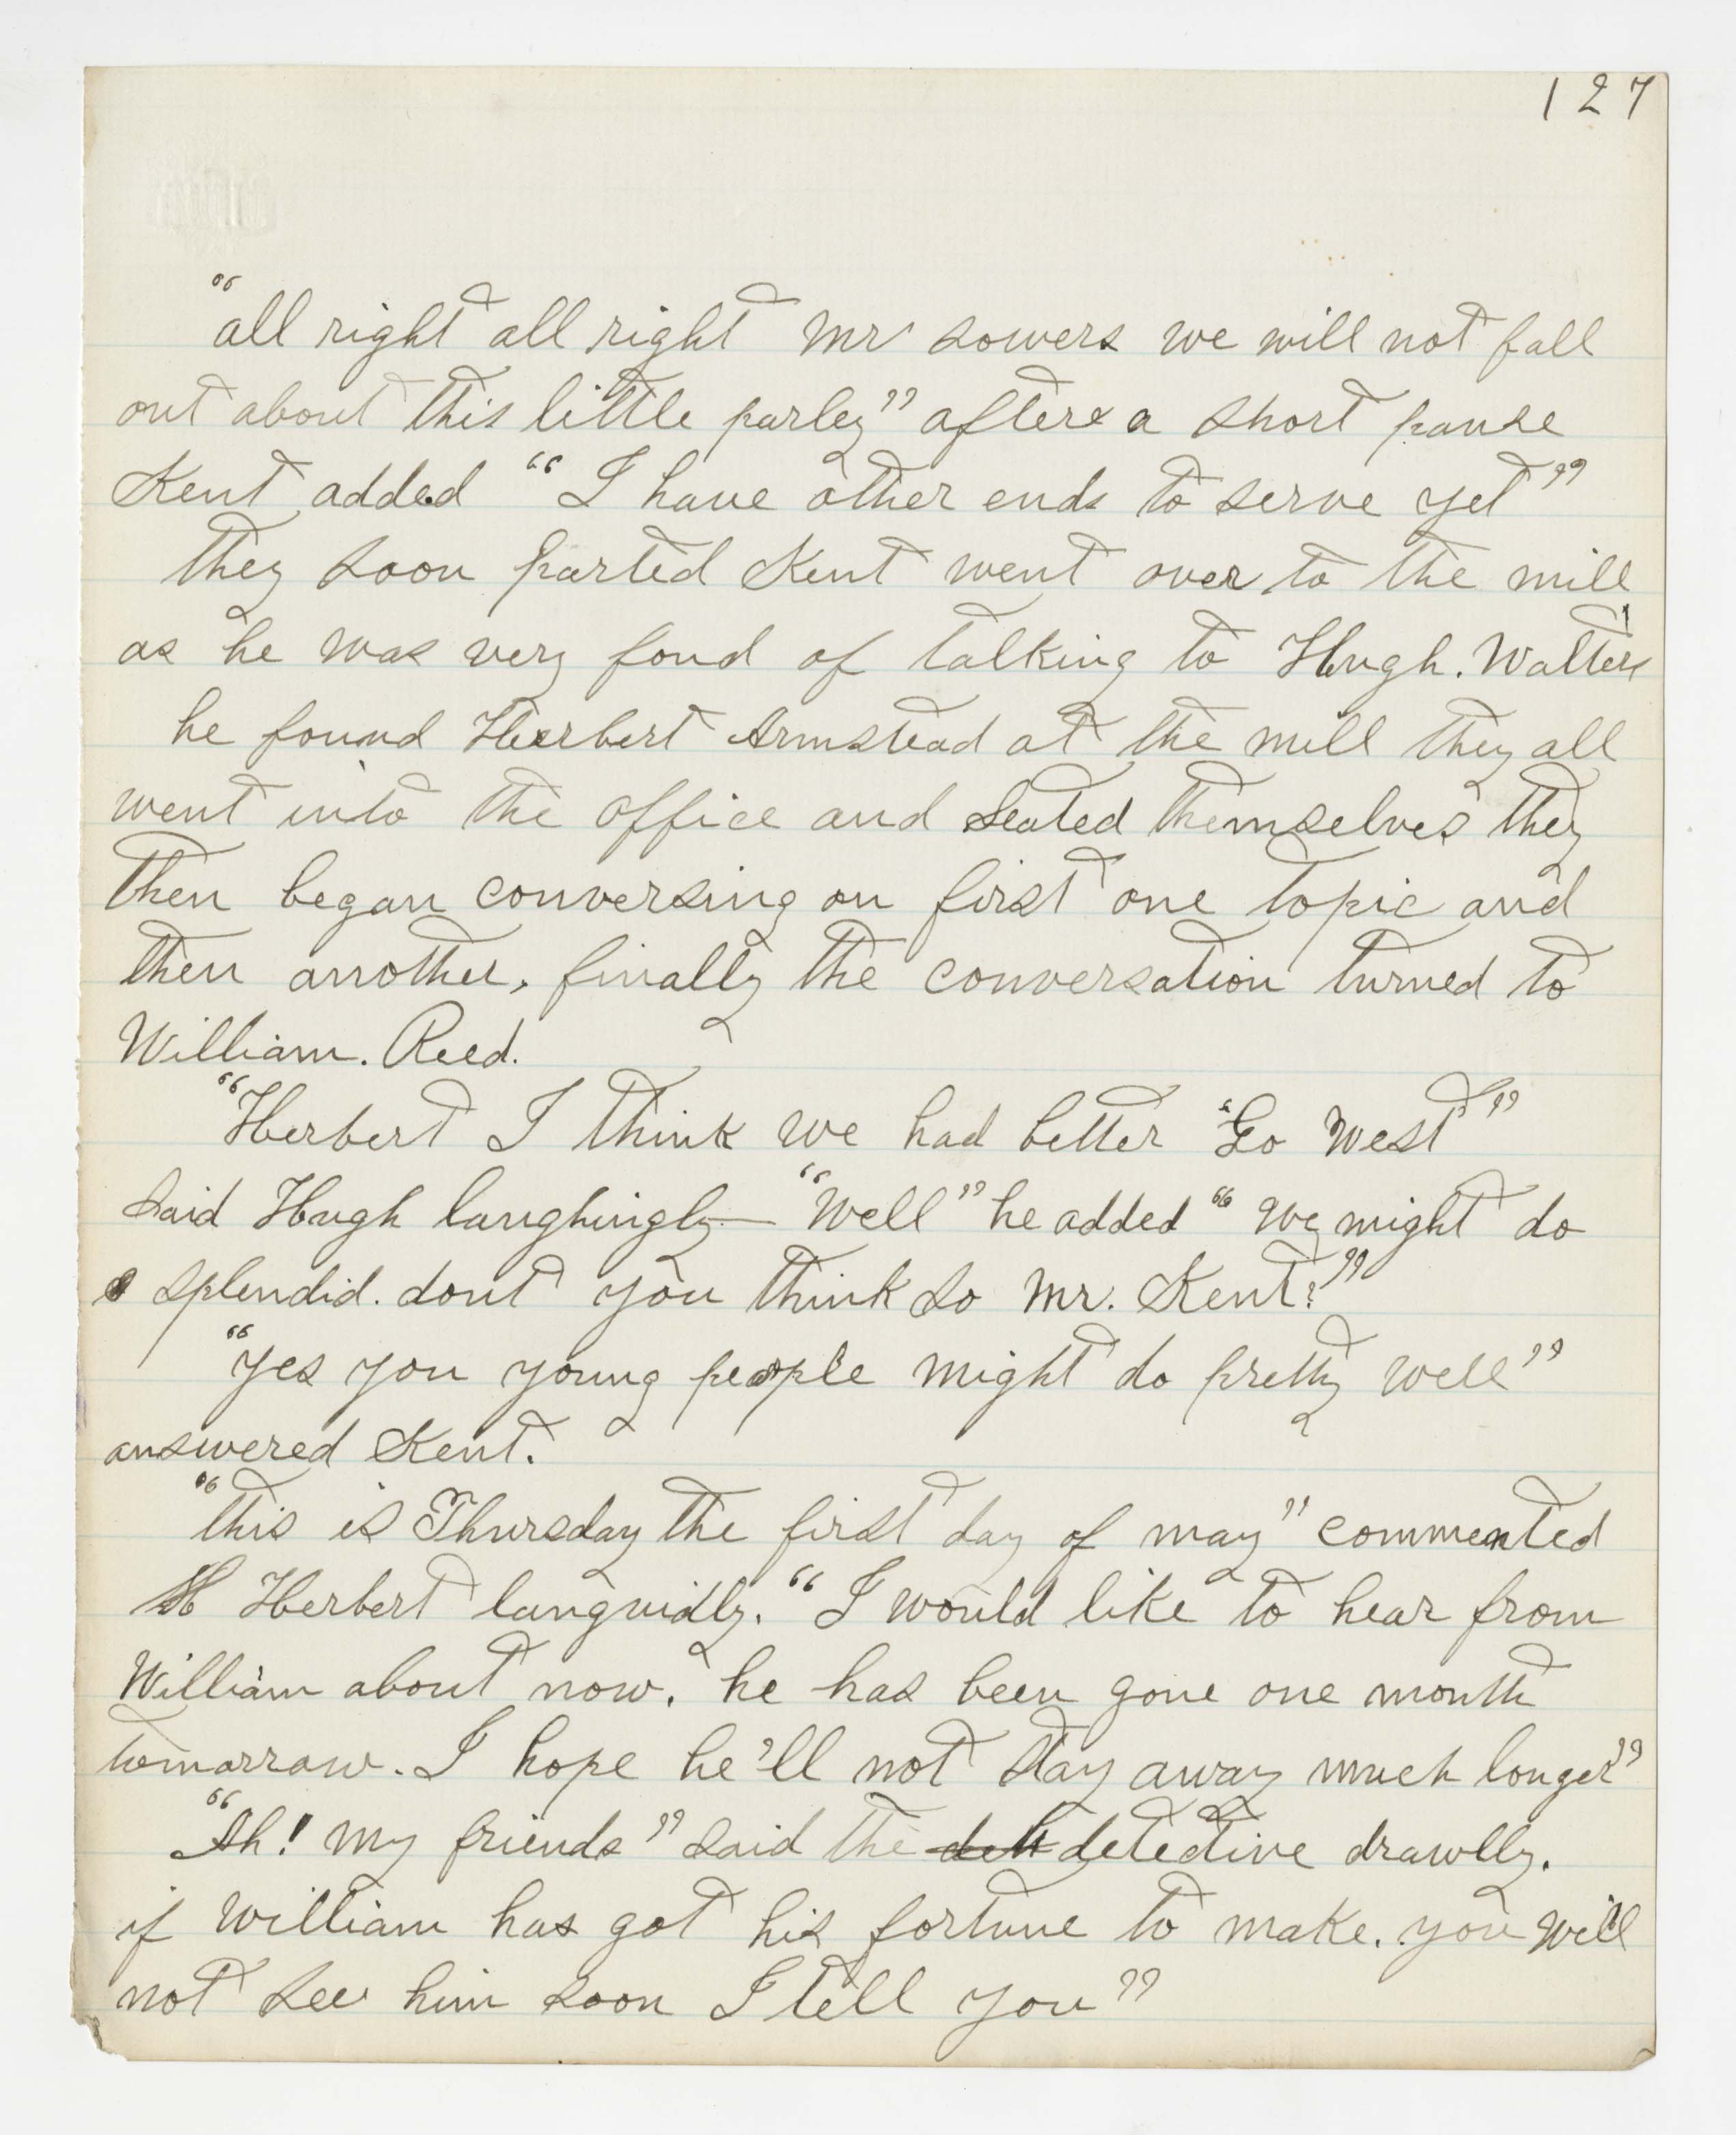 127
"all right all right Mr Sowers we will not fall
out about this little parley" after a short pause
Kent added "I have other ends to serve yet"
they soon parted Kent went over to the mill
as he was very fond of talking to Hugh. Walters
he found Herbert Armstead at the mill they all
went into the office and seated themselves they
then began conversing on first one topic and
then another, finally the conversation turned to
William. Reed.
"Herbert I think we had better "Go West"
said Hugh laughingly— "Well" he added "we might do
splendid. dont you think so Mr. Kent?"
"Yes you young people might do pretty well"
answered Kent.
"this is Thursday the first day of may" commented
H Herbert languidly. "I would like to hear from
William about now. he has been gone one month
tomorrow. I hope he'll not stay away much longer"
"Ah! my friends" said the detective drawlly.
if William has got his fortune to make. you will
not see him soon I tell you"